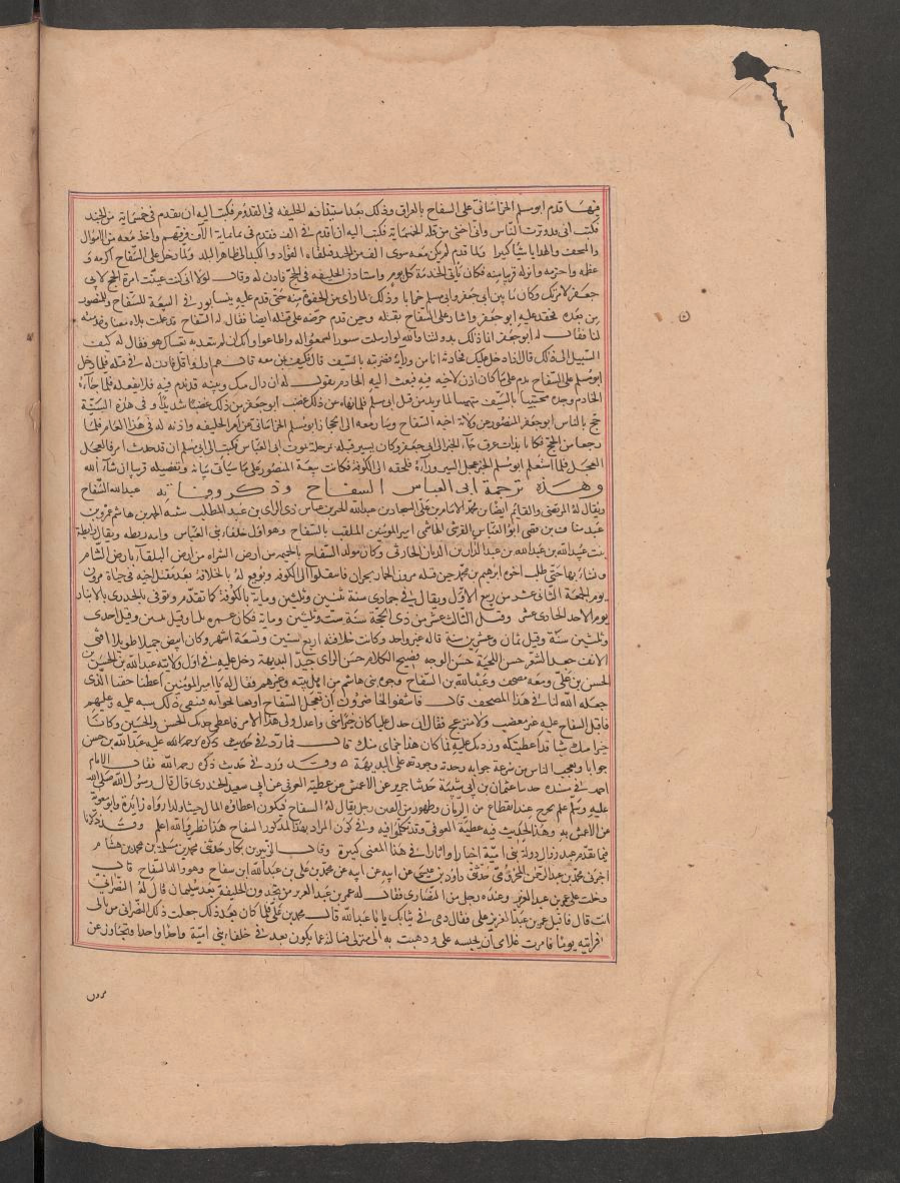 فيها قدم ابو مسلم الخراساني على السفاح بالعراق وذلك بعد استيذانه الخليفة في القدوم فكتب اليه ان يقدم في خمسماية من الجند
فكتب اني قد وترت الناس واني اخشى من قلة الخمسماية فكتب اليه ان اقدم في الف فقدم في ثمانية الاف فرقهم واخذ معه من الاموال
والتحف والهدايا شيا كثيرا ولما قدم لم يكن معه سوى الف من الجند فتلقاه القواد والكبرا الى ظاهر البلد ولما دخل على السفاح اكرمه و
عظمه واحترمه وانزله قريبا منه فكان ياتي الخدمة كل يوم واستاذن الخليفة في الحج فاذن له وقال لولا اني كنت عينت امرة الحج لابي
جعفر لامرتك وكان ما بين ابي جعفر وابي مسلم خرابا وذلك لما راى من الجفوة منه حتى قدم عليه نيسابور في البيعة للسفاح وللمنصور
من بعده فحقد عليه ابو جعفر واشار على السفاح بقتله وحين قدم حرضه على قتله ايضا فقال له السفاح قد علمت بلاه معنا وخدمته
لنا فقال له ابو جعفر انما ذلك بدولتنا والله لو ارسلت سنورا لسمعوا له واطاعوا وانك ان لم تتعد به تعشى بك هو فقال له كيف
السبيل الى ذلك قال اذا دخل عليك فحادثه انا من ورايه فضربته بالسيف قال فكيف بمن معه قال هم اذل واقل فاذن له في قتله فلما دخل
ابو مسلم على السفاح ندم على ما كان اذن لاخيه فيه فبعث اليه الخادم يقول له ان ذاك الذي بينك وبينه قد ندم فيه فلا يفعله فلما جاه
الخادم وجده محتبيا بالسيف قد تهيا لما يريد من قتل ابي مسلم فلما نهاه عن ذلك غضب ابو جعفر من ذلك غضبا شديدا وفي هذه السنة
حج بالناس ابو جعفر المنصور عن ولاية اخيه السفاح وسار معه الى الحجاز ابو مسلم الخراساني عن امر الخليفة واذنه له في هذا العام فلما
رجعا من الحج فكانا بذات عرق جاء الخبر الى ابي جعفر وكان يسير قبله بمرحلة بموت ابي العباس فكتب الى ابي مسلم ان قد حدث امر فالعجل
العجل فلما استعلم ابو مسلم الخبر عجل السير وراه فلحقه الى الكوفة فكانت بيعة المنصور على ما سياتي بيانه وتفصيله قريبا ان شاء الله
وهذه ترجمة ابي العباس السفاح وذكر وفاته عبد الله السفاح
ويقال له المرتضى والقايم ايضا بن محمد الامام بن علي السجاد بن عبد الله الحبر بن عباس ذي الراي بن عبد المطلب شيبة الحمد بن هاشم عمرو بن
عبد مناف بن قصي ابو العباس القرشي الهاشمي امير المومنين الملقب بالسفاح وهو اول خلفاء بني العباس وامه ريطة ويقال رايطة
بنت عبيد الله بن عبد الله بن عبد المدان بن الديان الحارثي وكان مولد السفاح بالحميمة من ارض الشراه من ارض البلقاء بارض الشام
ونشا بها حتى طلب اخوه ابرهيم بن محمد حين قتله مروان الحمار بحران فانتقلوا الى الكوفة وبويع له بالخلافة بعد مقتل اخيه في حياة مروان
يوم الجمعة الثاني عشر من ربيع الاول ويقال في جمادى سنة ثنتين وثلثين وماية بالكوفة كما تقدم وتوفي بالجدري بالانبار
يوم الاحد الحادي عشر وقيل الثالث عشر من ذي الحجة سنة ست وثلثين وماية فكان عمره ثلثا وقيل ثنتين وقيل احدى
وثلثين سنة وقيل ثمان وعشرين سنة قاله غير واحد وكانت خلافته اربع سنين وتسعة اشهر وكان ابيض جميلا طويلا اقنى
الانف جعد الشعر حسن اللحية حسن الوجه فصيح الكلام حسن الراي جيد البديهة دخل عليه في اول ولايته عبد الله بن الحسن بن
الحسن بن علي ومعه مصحف وعند السفاح وجوه بني هاشم من اهل بيته وغيرهم فقال له يا امير المومنين اعطنا حقنا الذي
جعله الله لنا في هذا المصحف قال فاشفق الحاضرون ان يعجل السفاح او يعيا بجوابه فيبقى ذلك سبة عليه وعليهم
فاقبل السفاح عليه غير مغضب ولا منزعج فقال ان جدك عليا كان خيرا مني واعدل ولي هذا الامر فاعطى جديك الحسن والحسين وكانا
خيرا منك شيا قد اعطيتكه وزدتك عليه فما كان هذا جزاي منك قال فما رد عليه عبد الله بن حسن
جوابا وتعجب الناس من سرعة جوابه وحدته وجودته على البديهة وقد ورد في حديث ذكره رحمه الله فقال الامام
احمد في مسنده حدثنا عثمان بن ابي شيبة حدثنا جرير عن الاعمش عن عطية العوفي عن ابي سعيد الخدري قال قال رسول الله صلى الله
عليه وسلم يخرج عند انقطاع من الزمان وظهور من الفتن رجل يقال له السفاح فيكون اعطاوه المال حثيا وكذا رواه زائدة وابو معوية
عن الاعمش به وهذا الحديث فيه عطية العوفي وقد تكلموا فيه وفي كون المراد بهذا المذكور السفاح هذا نظر والله اعلم وقد ذكرنا
فيما تقدم عند زوال دولة بني امية اخبارا واثارا في هذا المعنى كثيرة وقال الزبير بن بكار حدثني محمد بن سلمة بن محمد بن هشام
اخبرني محمد بن عبد الرحمن المخزومي حدثني داود بن عيسى عن ابيه عن محمد بن علي بن عبد الله بن عباس وهو والد السفاح قال
دخلت على عمر بن عبد العزيز وعنده رجل من النصارى فقال له عمر بن عبد العزيز من تجدون الخليفة بعد سليمان قال له النصراني
انت قال فاقبل عمر بن عبد العزيز علي فقال دمي في ثيابك يا ابا عبد الله قال محمد بن علي فلما كان بعد ذلك جعلت ذلك النصراني من بالي
فرايته يوما فامرت غلامي ان يحبسه علي وذهبت به الى منزلي فسالته عما يكون بعد في خلفاء بني امية واحدا واحدا وتجاوز عن
مروان